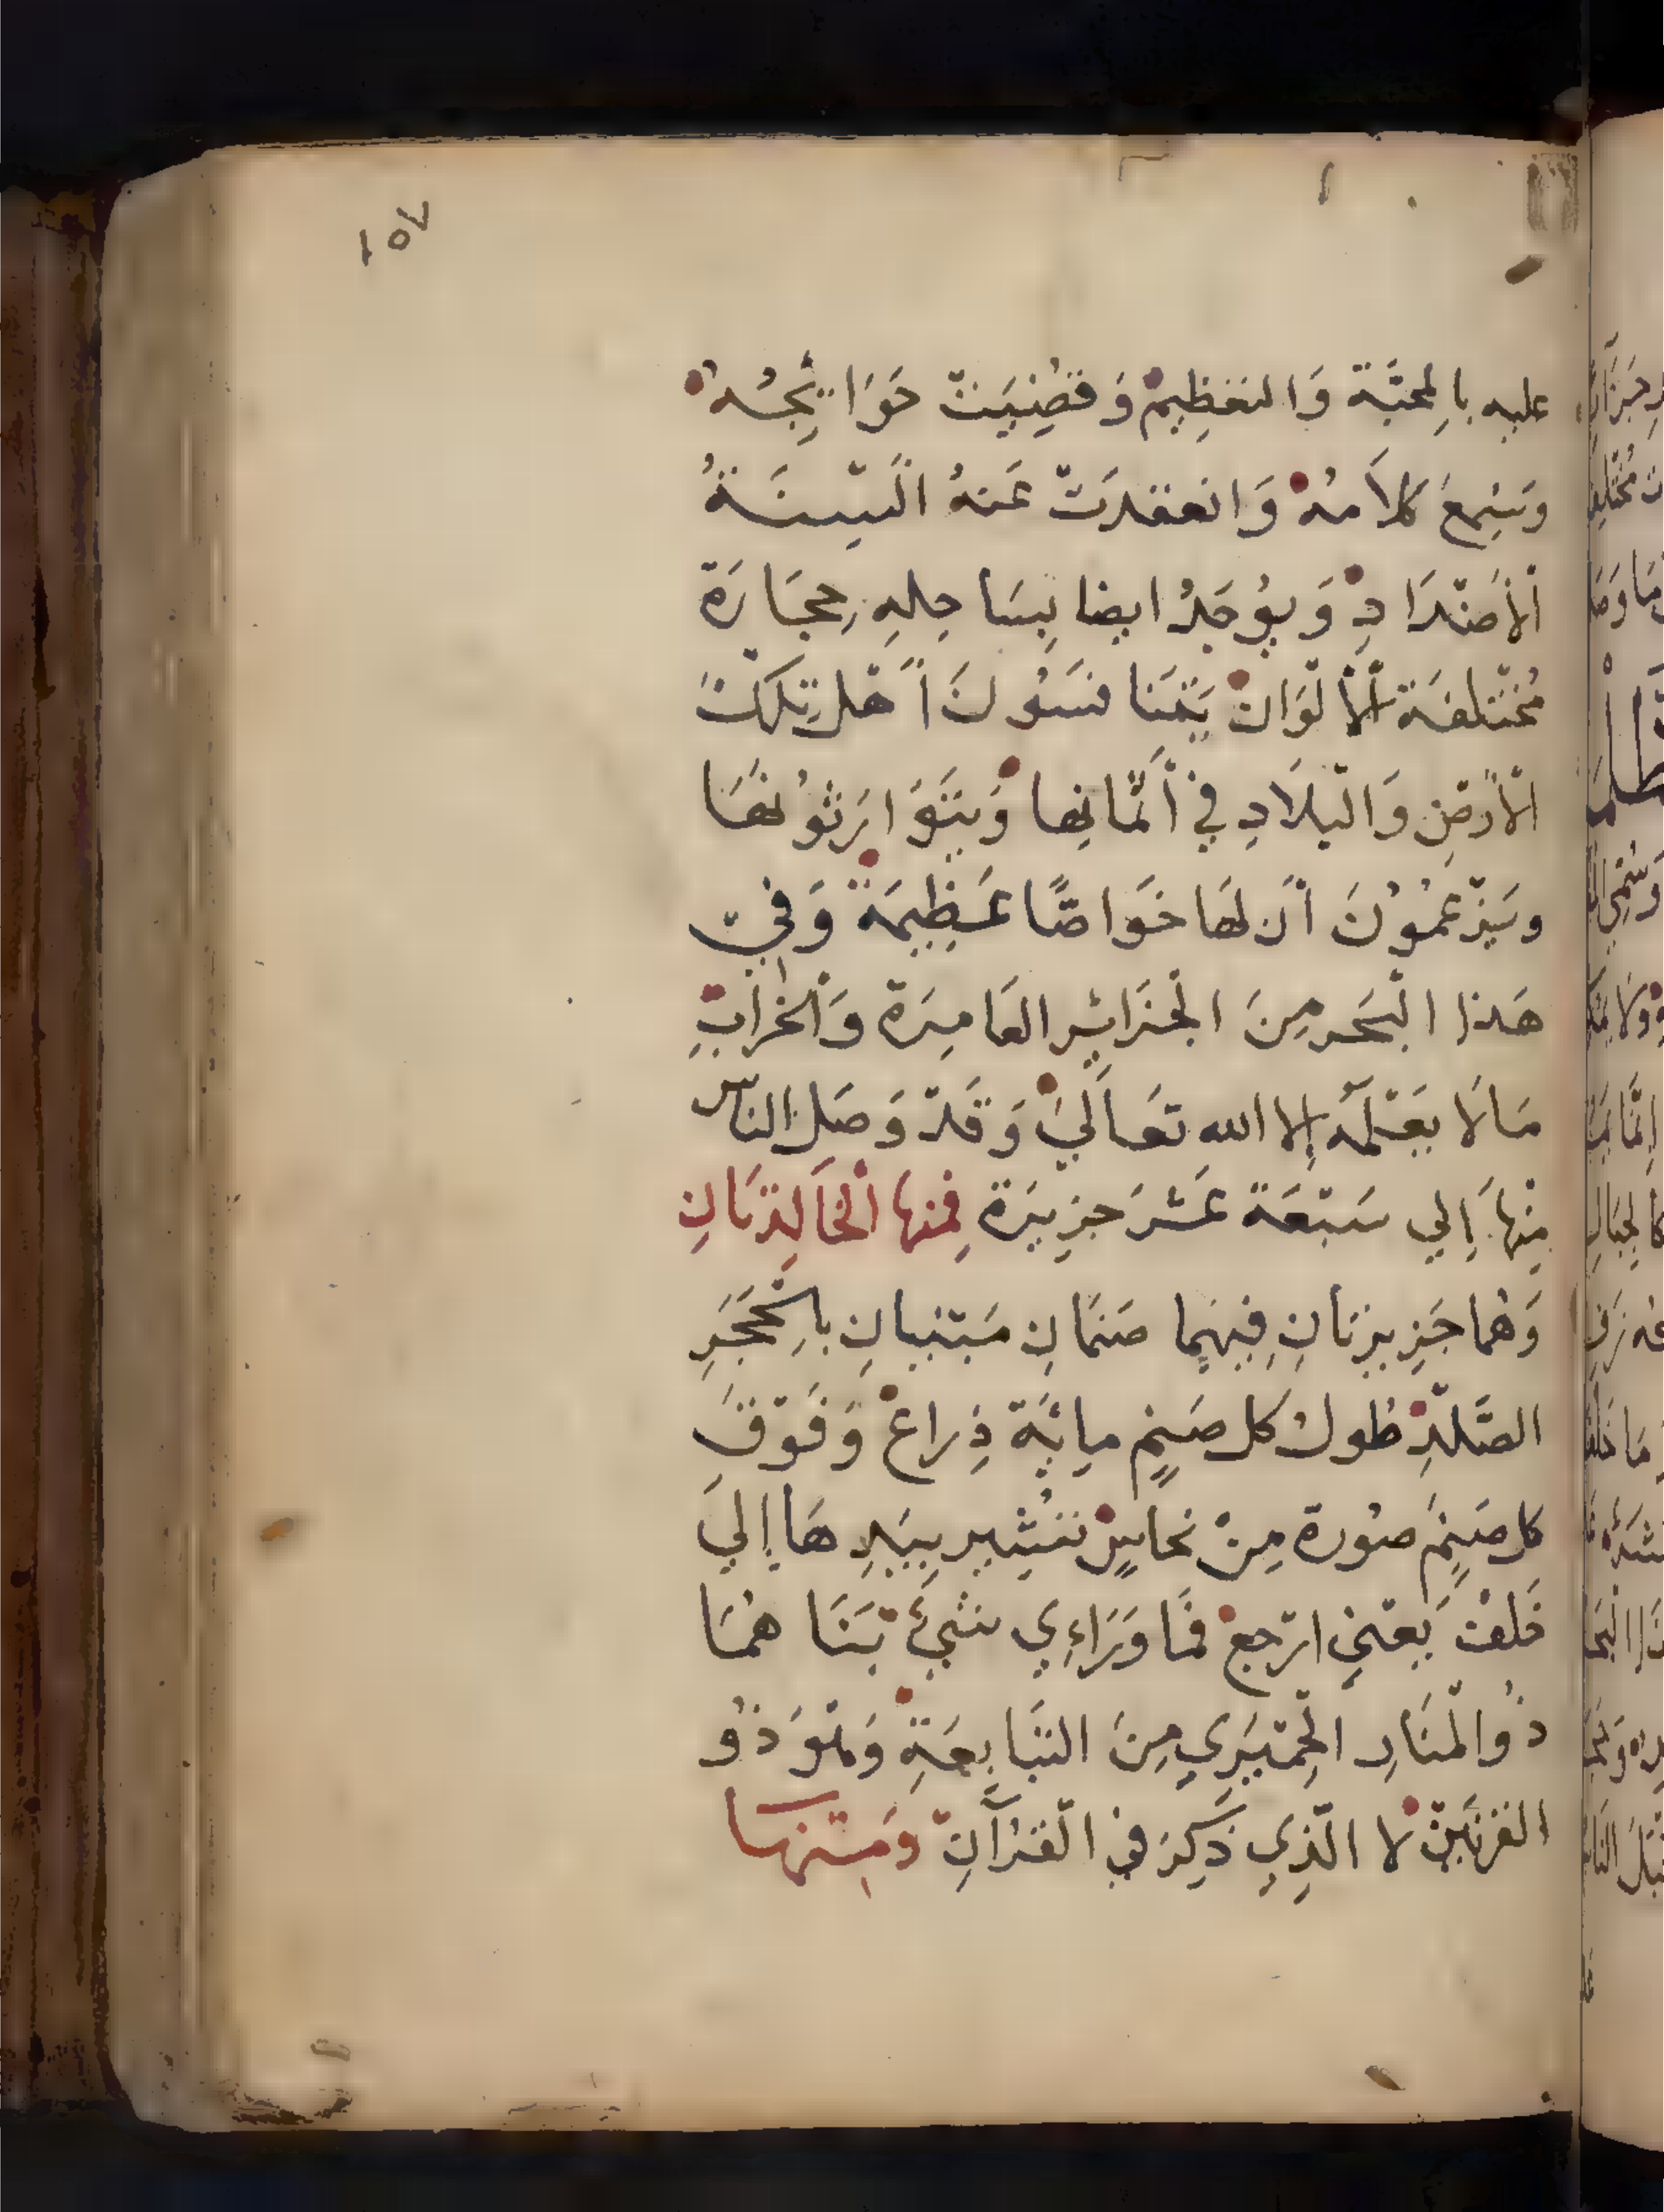 ١٥٧
عليه بِالمحبَّة وَالتعظِيم وَقضِيَت حَوَايِجُه
وَسُمِعَ كلاَمهُ وَانعقدَت عَنهُ ألسِنَةُ
الأضدَادِ وَيوُجَدُ ايضا بِسَاحِلهِ حِجَارَة
مُختلفَة الألوَان يَتَنافسَوُنَ أهل تِلكَ
الأرضِ وَالبلاَدِ في أثمانِها وَيَتَوَارَثوُنهَا
وَيَزعمُوُنَ أن لهَا خَوَاصًّا عَظِيمَة وَفي
هَذا البَحر مِنَ الجزَائِر العَامِرَة وَالخرَابِ
مَا لَا يعَلمه إلا الله تعَالَي وَقَد وَصَل الناس
مِنْهاَ إِلي سَبعَة عَشرَ جزِيرَة فمِنها الخَالِدَتانِ
وَهُما جَزِيرتانِ فِيهِما صَنمَانِ مَبنيانِ بِالحَجَرِ
الصَّلدِ طول كل صَنمٍ مِايَة ذِراع وَفوقَ
كل صَنمٍ صوُرة مِنْ نحاسٍ تشِير بِيَدِهَا إليَ
خَلف يَعني ارجع فمَا وَرَاءِي شَيء بَنَا هُمَا
ذُوالمنَارِ الحِميَرِي مِنَ التبَابِعَةِ وَهُوَ ذُو
القرنَين لا الذِي ذكِرَ في القُرآنِ وَمِنهَا